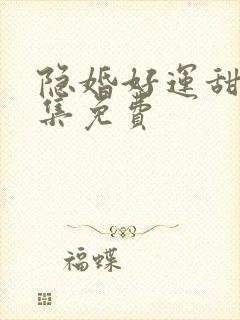 隐婚好运甜
集免费
福蝶